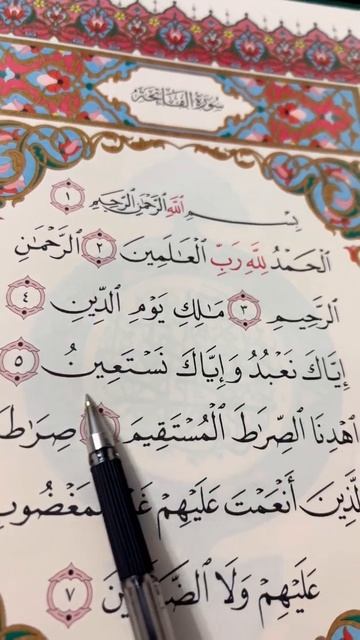 سُورَةُ الْفَاتِحَةِ
بِسْمِ اللَّهِ الرَّحْمَٰنِ الرَّحِيمِ ١
الْحَمْدُ لِلَّهِ رَبِّ الْعَالَمِينَ ٢ الرَّحْمَٰنِ
الرَّحِيمِ ٣ مَالِكِ يَوْمِ الدِّينِ ٤
إِيَّاكَ نَعْبُدُ وَإِيَّاكَ نَسْتَعِينُ ٥
اهْدِنَا الصِّرَاطَ الْمُسْتَقِيمَ صِرَاطَ
الَّذِينَ أَنْعَمْتَ عَلَيْهِمْ
عَلَيْهِمْ وَلَا ٧